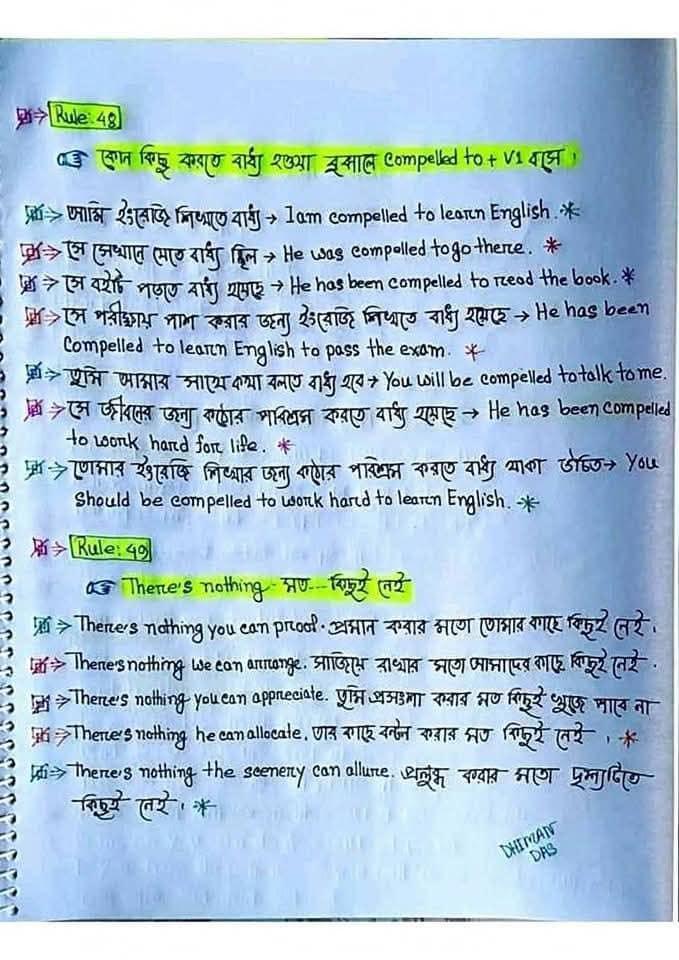 Rule: 48
কোন কিছু করতে বাধ্য হওয়া বুঝালে compelled to + V1 বসে।
আমি ইংরেজি শিখতে বাধ্য → I am compelled to learn English.
সে সেখানে যেতে বাধ্য ছিল → He was compelled to go there.
সে বইটি পড়তে বাধ্য হয়েছে → He has been compelled to read the book.
সে পরীক্ষায় পাশ করার জন্য ইংরেজি শিখতে বাধ্য হয়েছে → He has been
Compelled to learn English to pass the exam.
তুমি আমার সাথে কথা বলতে বাধ্য হবে → You will be compelled to talk to me.
সে জীবনের জন্য কঠোর পরিশ্রম করতে বাধ্য হয়েছে → He has been compelled
to work hard for life.
তোমার ইংরেজি শিখার জন্য কঠোর পরিশ্রম করতে বাধ্য থাকা উচিত → You
Should be compelled to work hard to learn English.
Rule: 49
There's nothing - মত --- কিছুই নেই
There's nothing you can proof. প্রমান করার মতো তোমার কাছে কিছুই নেই.
There's nothing we can arrange. সাজিয়ে রাখার মতো আমাদের কাছে কিছুই নেই.
There's nothing you can appreciate. তুমি প্রসংশা করার মত কিছুই খুজে পাবে না
There's nothing he can allocate. তার কাছে বন্টন করার মত কিছুই নেই.
There's nothing the scenery can allure. প্রলুব্ধ করার মতো দৃশ্যটিতে
কিছুই নেই.
DHIMAN
DAS